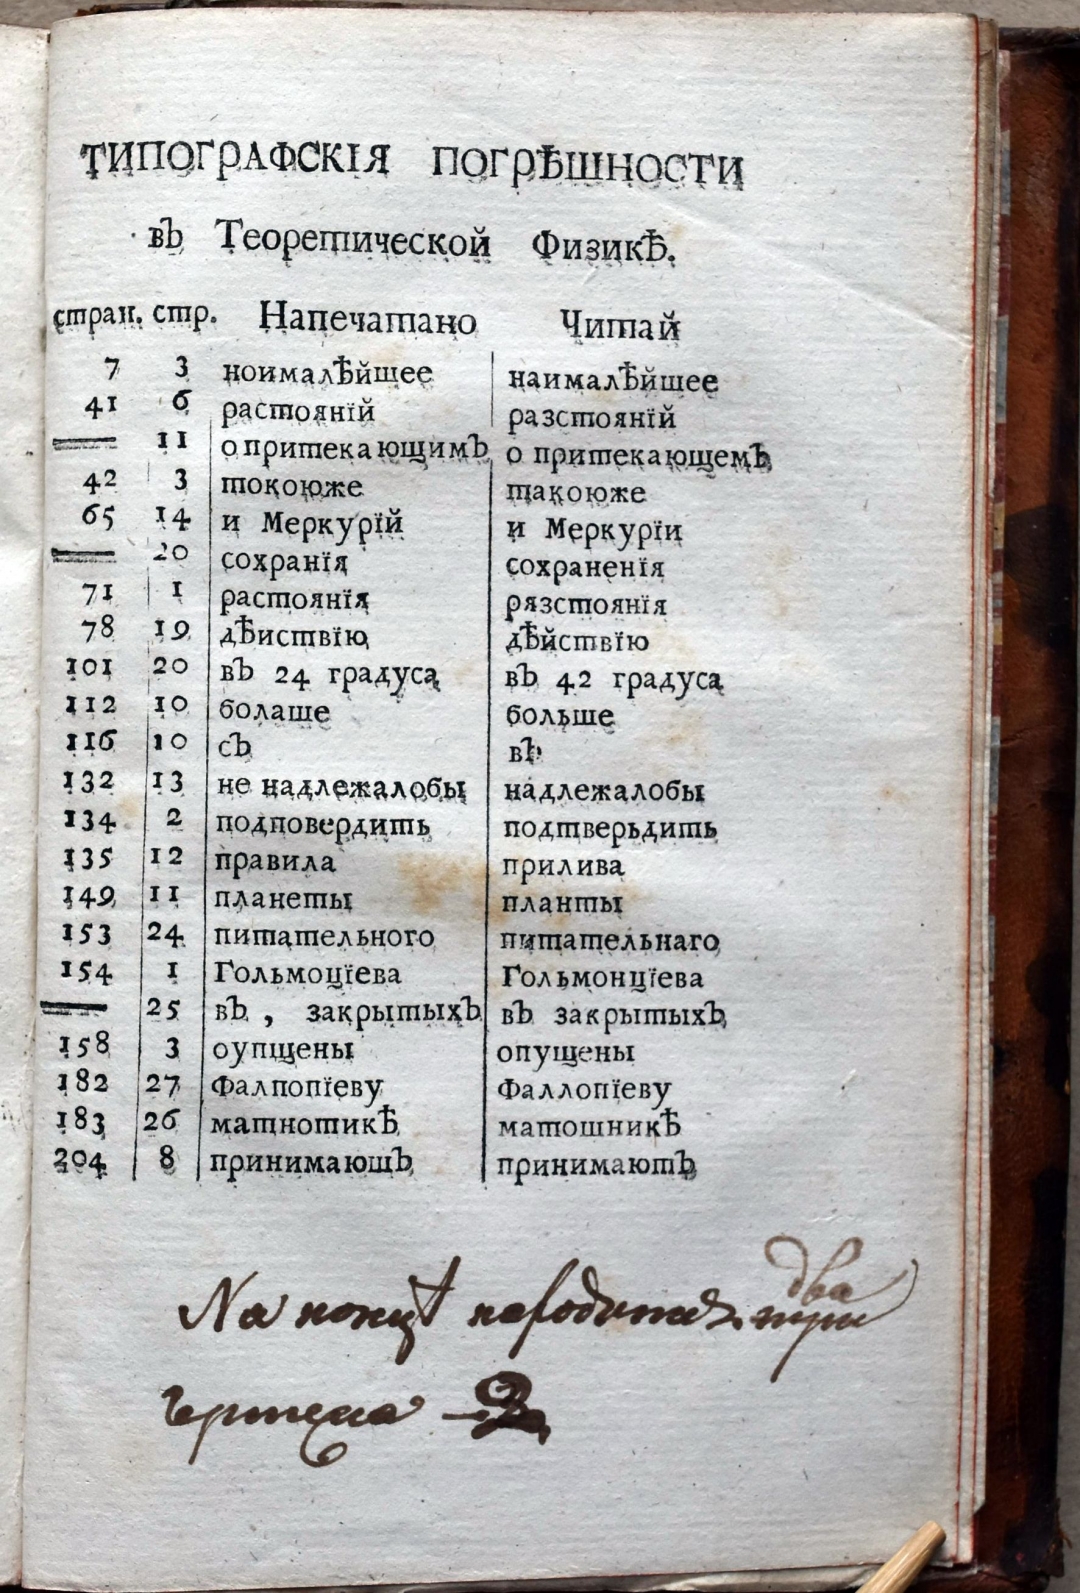 ТИПОГРАФСКІЯ ПОГРѢШНОСТИ
въ Теоретической Физикѣ.
стран. стр. Напечатано Читай
7 3 ноималѣйщее наималѣйшее
41 6 растоянїй разстоянїй
—— 11 о притекающимъ о притекающемъ
42 3 токоюже такоюже
65 14 и Меркурїй и Меркурїи
—— 20 сохранїя сохраненїя
71 1 растоянїя рязстоянїя
78 19 дѣиствїю дѣйствїю
101 20 въ 24 градуса въ 42 градуса
112 10 болаше больше
116 10 съ въ
132 13 не надлежалобы надлежалобы
134 2 подповердить подтверьдить
135 12 правила прилива
149 11 планеты планты
153 24 питательного питательнаго
154 1 Гольмоцїева Гольмонцїева
—— 25 въ , закрытыхъ въ закрытыхъ
158 3 оупщены опущены
182 27 Фалпопїеву Фаллопїеву
183 26 матнотикѣ матошникѣ
204 8 принимающъ принимаютъ
два
На концѣ находится три
чертежа — 2